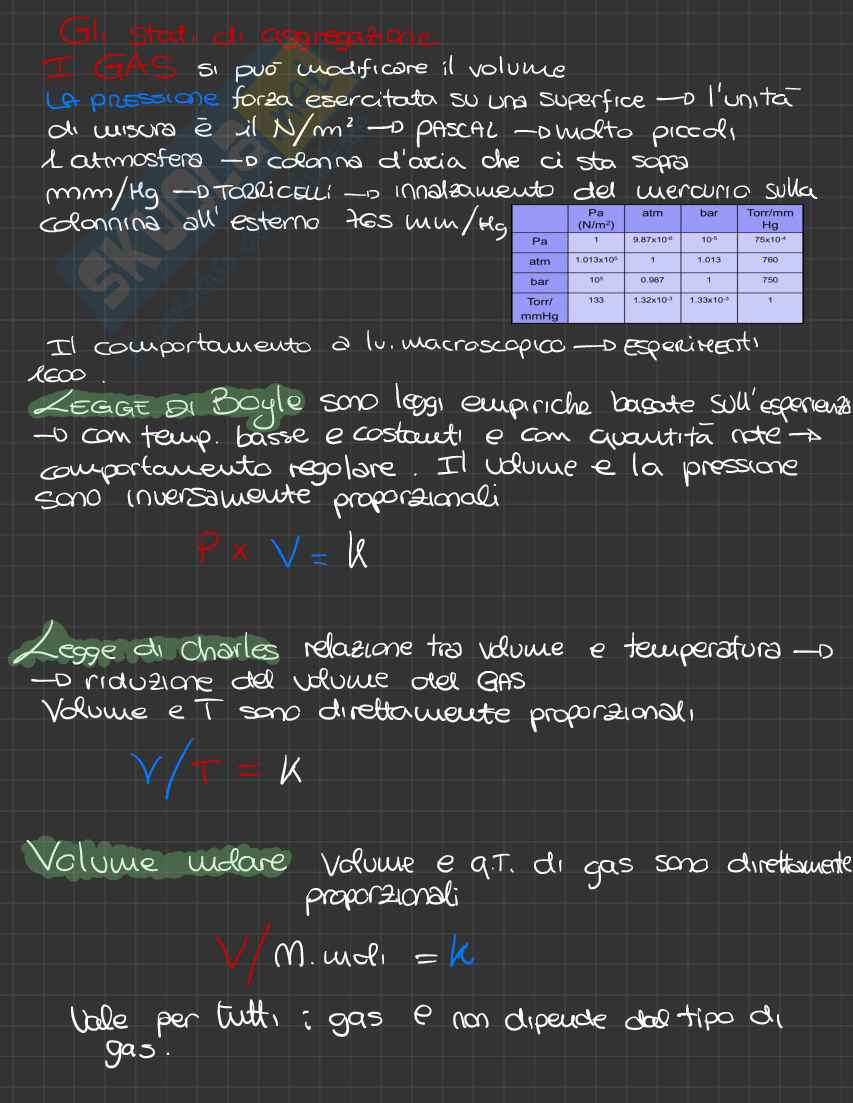 Gli stati di aggregazione
I GAS si può modificare il volume
LA PRESSIONE forza esercitata su una superfice → l'unità
di misura è il N/m² → PASCAL → molto piccoli
1 atmosfera → colonna d'aria che ci sta sopra
mm/Hg → TORRICELLI → innalzamento del mercurio sulla
colonnina all'esterno 765 mm/Hg
Pa (N/m²) atm bar Torr/mm Hg
Pa 1 9.87x10⁻⁶ 10⁻⁵ 75x10⁻⁴
atm 1.013x10⁵ 1 1.013 760
bar 10⁵ 0.987 1 750
Torr/ mmHg 133 1.32x10⁻³ 1.33x10⁻³ 1
Il comportamento a lv. macroscopico → ESPERIMENTI
1600.
LEGGE DI Boyle sono leggi empiriche basate sull'esperienza
→ con temp. basse e costanti e con quantità note →
comportamento regolare. Il volume e la pressione
sono inversamente proporzionali
P x V = K
Legge di Charles relazione tra volume e temperatura →
→ riduzione del volume del GAS
Volume e T sono direttamente proporzionali
V/T = K
Volume molare Volume e q.T. di gas sono direttamente
proporzionali
V/n.moli = K
Vale per tutti i gas e non dipende dal tipo di
gas.
SKUOLA.NET